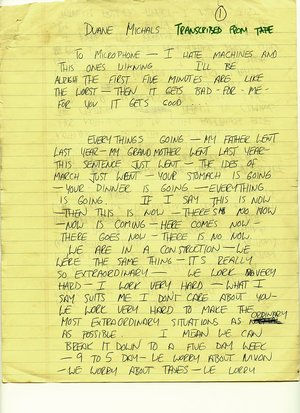 1
DUANE MICHALS TRANSCRIBED FROM TAPE
TO MICROPHONE — I HATE MACHINES AND
THIS ONES WINNING I'LL BE
ALRIGHT THE FIRST FIVE MINUTES ARE LIKE
THE WORST — THEN IT GETS BAD - FOR - ME -
FOR YOU IT GETS GOOD
EVERYTHINGS GOING — MY FATHER WENT
LAST YEAR — MY GRANDMOTHER WENT LAST YEAR —
THIS SENTENCE JUST WENT — THE IDES OF
MARCH JUST WENT — YOUR STOMACH IS GOING
— YOUR DINNER IS GOING — EVERYTHING
IS GOING. IF I SAY THIS IS NOW
— THEN THIS IS NOW — THERES NO NOW
— NOW IS COMING — HERE COMES NOW —
THERE GOES NOW — THERE IS NO NOW.
WE ARE IN A CONSTRUCTION — WE
WERE THE SAME THING — IT'S REALLY
SO EXTRAORDINARY — WE WORK VERY
HARD — I WORK VERY HARD — WHAT I
SAY SUITS ME I DONT CARE ABOUT YOU —
WE WORK VERY HARD TO MAKE THE
MOST EXTRAORDINARY SITUATIONS AS ORDINARY
AS POSSIBLE I MEAN WE CAN
BREAK IT DOWN TO A FIVE DAY WEEK
— 9 TO 5 DAY — WE WORRY ABOUT NIXON
— WE WORRY ABOUT TAXES — WE WORRY